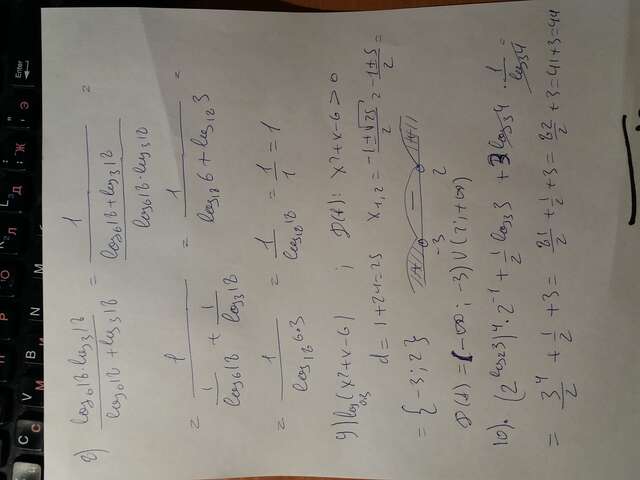 C с
V м
B и
N
Л
Д
Ж
Э
Enter
8) (log₆18·log₃18)/(log₆18 + log₃18) = 1/((log₆18 + log₃18)/(log₆18·log₃18)) =
= 1/(1/log₆18 + 1/log₃18) = 1/(log₁₈6 + log₁₈3) =
= 1/(log₁₈6·3) = 1/log₁₈18 = 1/1 = 1
9) log₀,₃(x²+x-6) ; D(f): x²+x-6>0
d = 1+24=25 x₁,₂ = (-1±√25)/2 = (-1±5)/2 =
= {-3; 2} + − +
-3 2
D(f) = (-∞; -3) ∪ (2; +∞)
10). (2^(log₂3))⁴·2⁻¹ + 1/2 log₃3 + 3 log₃4 · 1/log₃4 =
= 3⁴/2 + 1/2 + 3 = 81/2 + 1/2 + 3 = 82/2 + 3 = 41+3=44